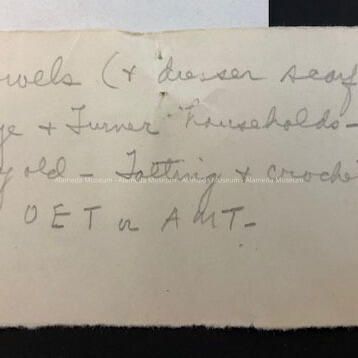 owels (+ dresser scarf
ge + Turner households -
y old - Tatting + croche
Alameda Museum - Alameda Museum - Alameda Museum - Alameda Museum - Alameda Museum
OET or AMT -